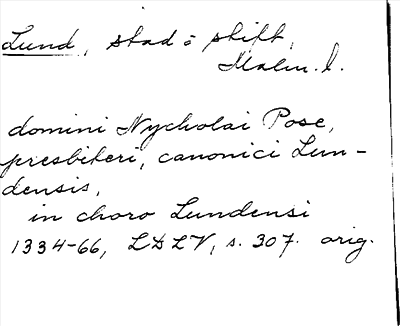 Lund, stad o stift,
Malm. l.
domini Nycholai Pose,
presbiteri, canonici Lun-
densis,
in choro Lundensi
1334-66, LDLV, s. 307. orig.